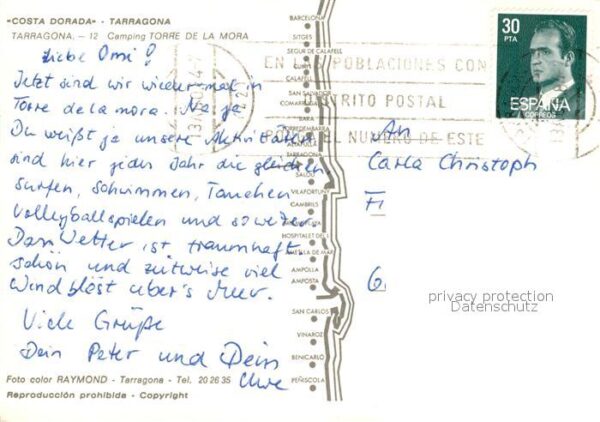 «COSTA DORADA» - TARRAGONA
TARRAGONA. – 12 Camping TORRE DE LA MORA
Liebe Omi!
Jetzt sind wir wieder mal in
Torre de la mora. Na ja
Du weißt ja unsere Aktivitäten
sind hier jedes Jahr die gleichen.
Surfen, Schwimmen, Tauchen
Volleyballspielen und so weiter.
Das Wetter ist traumhaft
schön und zeitweise viel
Wind bläst über's Meer.
Viele Grüße
Dein Peter und Dein
Uwe
Foto color RAYMOND - Tarragona - Tel. 20 26 35
Reproducción prohibida - Copyright
BARCELONA
SITGES
SEGUR DE CALAFELL
CALAFELL
SAN SALVADOR
COMARRUGA
BARA
TORREDEMBARRA
ALTAFULLA
TARRAGONA
SALOU
VILAFORTUNY
CAMBRILS
HOSPITALET DEL I.
AMETLLA DE MAR
AMPOLLA
AMPOSTA
SAN CARLOS
VINAROZ
BENICARLÓ
PEÑISCOLA
EN LAS POBLACIONES CON
DISTRITO POSTAL
EL NUMERO DE ESTE
30
PTA
ESPAÑA
CORREOS
An
Carla Christoph
F
G.
privacy protection
Datenschutz